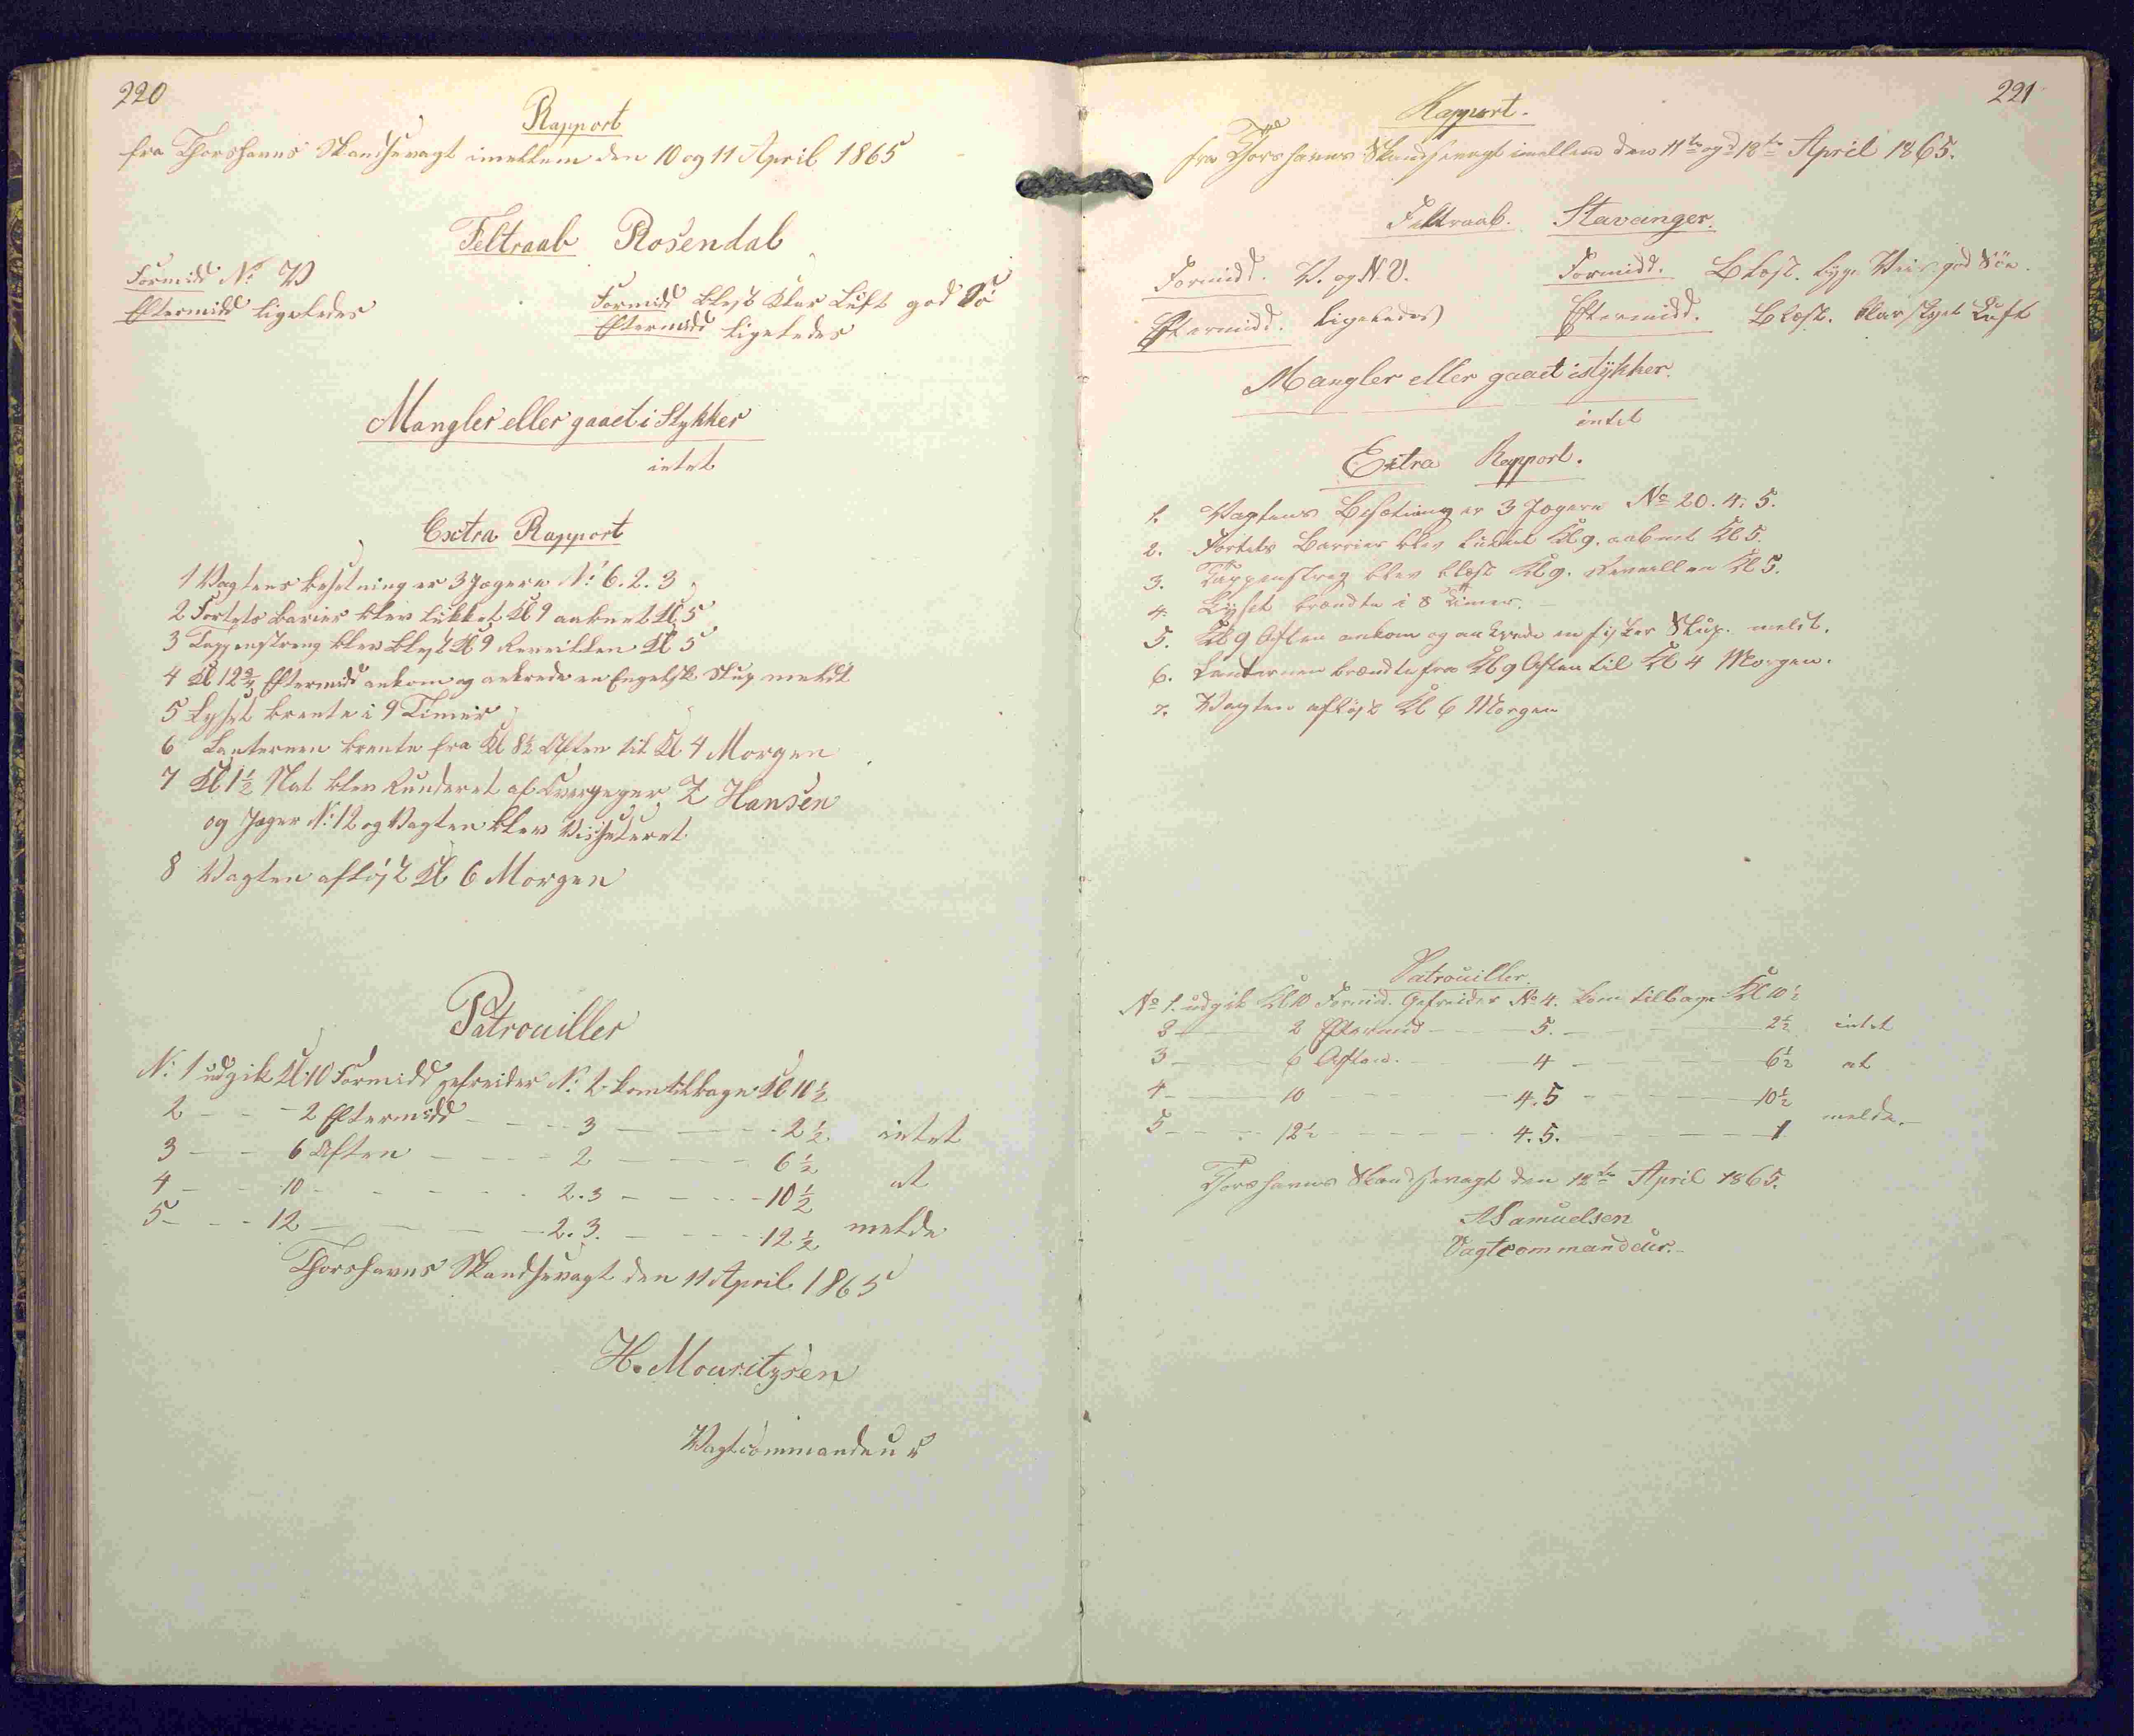 220
Rapport
fra Thorshavns Skandsevagt imellem den 10 og 11 April 1865
Feltraab Rosendal
Formidd N: V
Eftermidd ligeledes
Formidd blest klar Luft god Sø
Eftermidd ligeledes
Mangler eller gaaet i Stykker
intet
Extra Rapport
1 Vagtens besetning er 3 Jegere N: 6. 2. 3
2 Fortets barier blev lukket Kl 9 aabnet Kl 5
3 Tappenstreng blev blest Kl 9 Reveillen Kl 5
4 Kl 12 3/4 Eftermidd ankom og ankrede en Engelsk Slup meldt
5 Lyset brente i 9 Timer
6 Lanternen brente fra Kl 8 1/2 Aften til Kl 4 Morgen
7 Kl 1 1/2 Nat blev Runderet af Z Hansen
og Jeger N: 12 og Vagten blev Visiteret
8 Vagten afløst Kl 6 Morgen
Patrouiller
N: 1 udgik Kl 10 Formidd gefreider N: 2 kom tilbage Kl 10 1/2
2 - - - 2 Eftermidd - - - 3 - - - 2 1/2 intet
3 - - 6 Aften - - - 2 - - - 6 1/2 at
4 - - 10 - - - - 2.3 - - - 10 1/2
5 - - 12 - - - 2.3. - - - 12 1/2 melde
Thorshavns Skandsevagt den 11 April 1865
H. Mouritzsen
Vagtcommandeur
221
Rapport.
fra Thorshavns Skandsevagt imellem den 11te og 12te April 1865.
Feltraab. Stavanger.
Formidd. V. og N.V.
Eftermidd. ligeledes
Formidd. Blæst. byge Veir god Søe.
Eftermidd. Blæst. klar skyet Luft
Mangler eller gaaet istykker.
intet
Extra Rapport.
1. Vagtens Besætning er 3 Jægere No 20. 4. 5.
2. Fortets Barrier blev lukket Kl 9. aabnet Kl 5.
3. Tappenstreg blev blæst Kl 9. Reveillen Kl 5.
4. Lyset brændte i 8 Timer.
5. Kl 9 Aften ankom og ankrede en fisker Slup. meldt.
6. Lanternen brændte fra Kl 9 Aften til Kl 4 Morgen.
7. Vagten afløst Kl 6 Morgen
Patrouiller.
No 1. udgik Kl 10 Formid. Gefreider No 4. kom tilbage Kl 10 1/2
2 - - 2 Eftermid - - - 5. - - - 2 1/2 intet
3 - - 6 Aften. - - - 4 - - - 6 1/2 at
4 - - 10 - - - 4.5 - - - 10 1/2
5 - - 12 1/2 - - - 4.5. - - - 1 melde.
Thorshavns Skandsevagt den 12te April 1865.
Samuelsen
Vagtcommandeur.